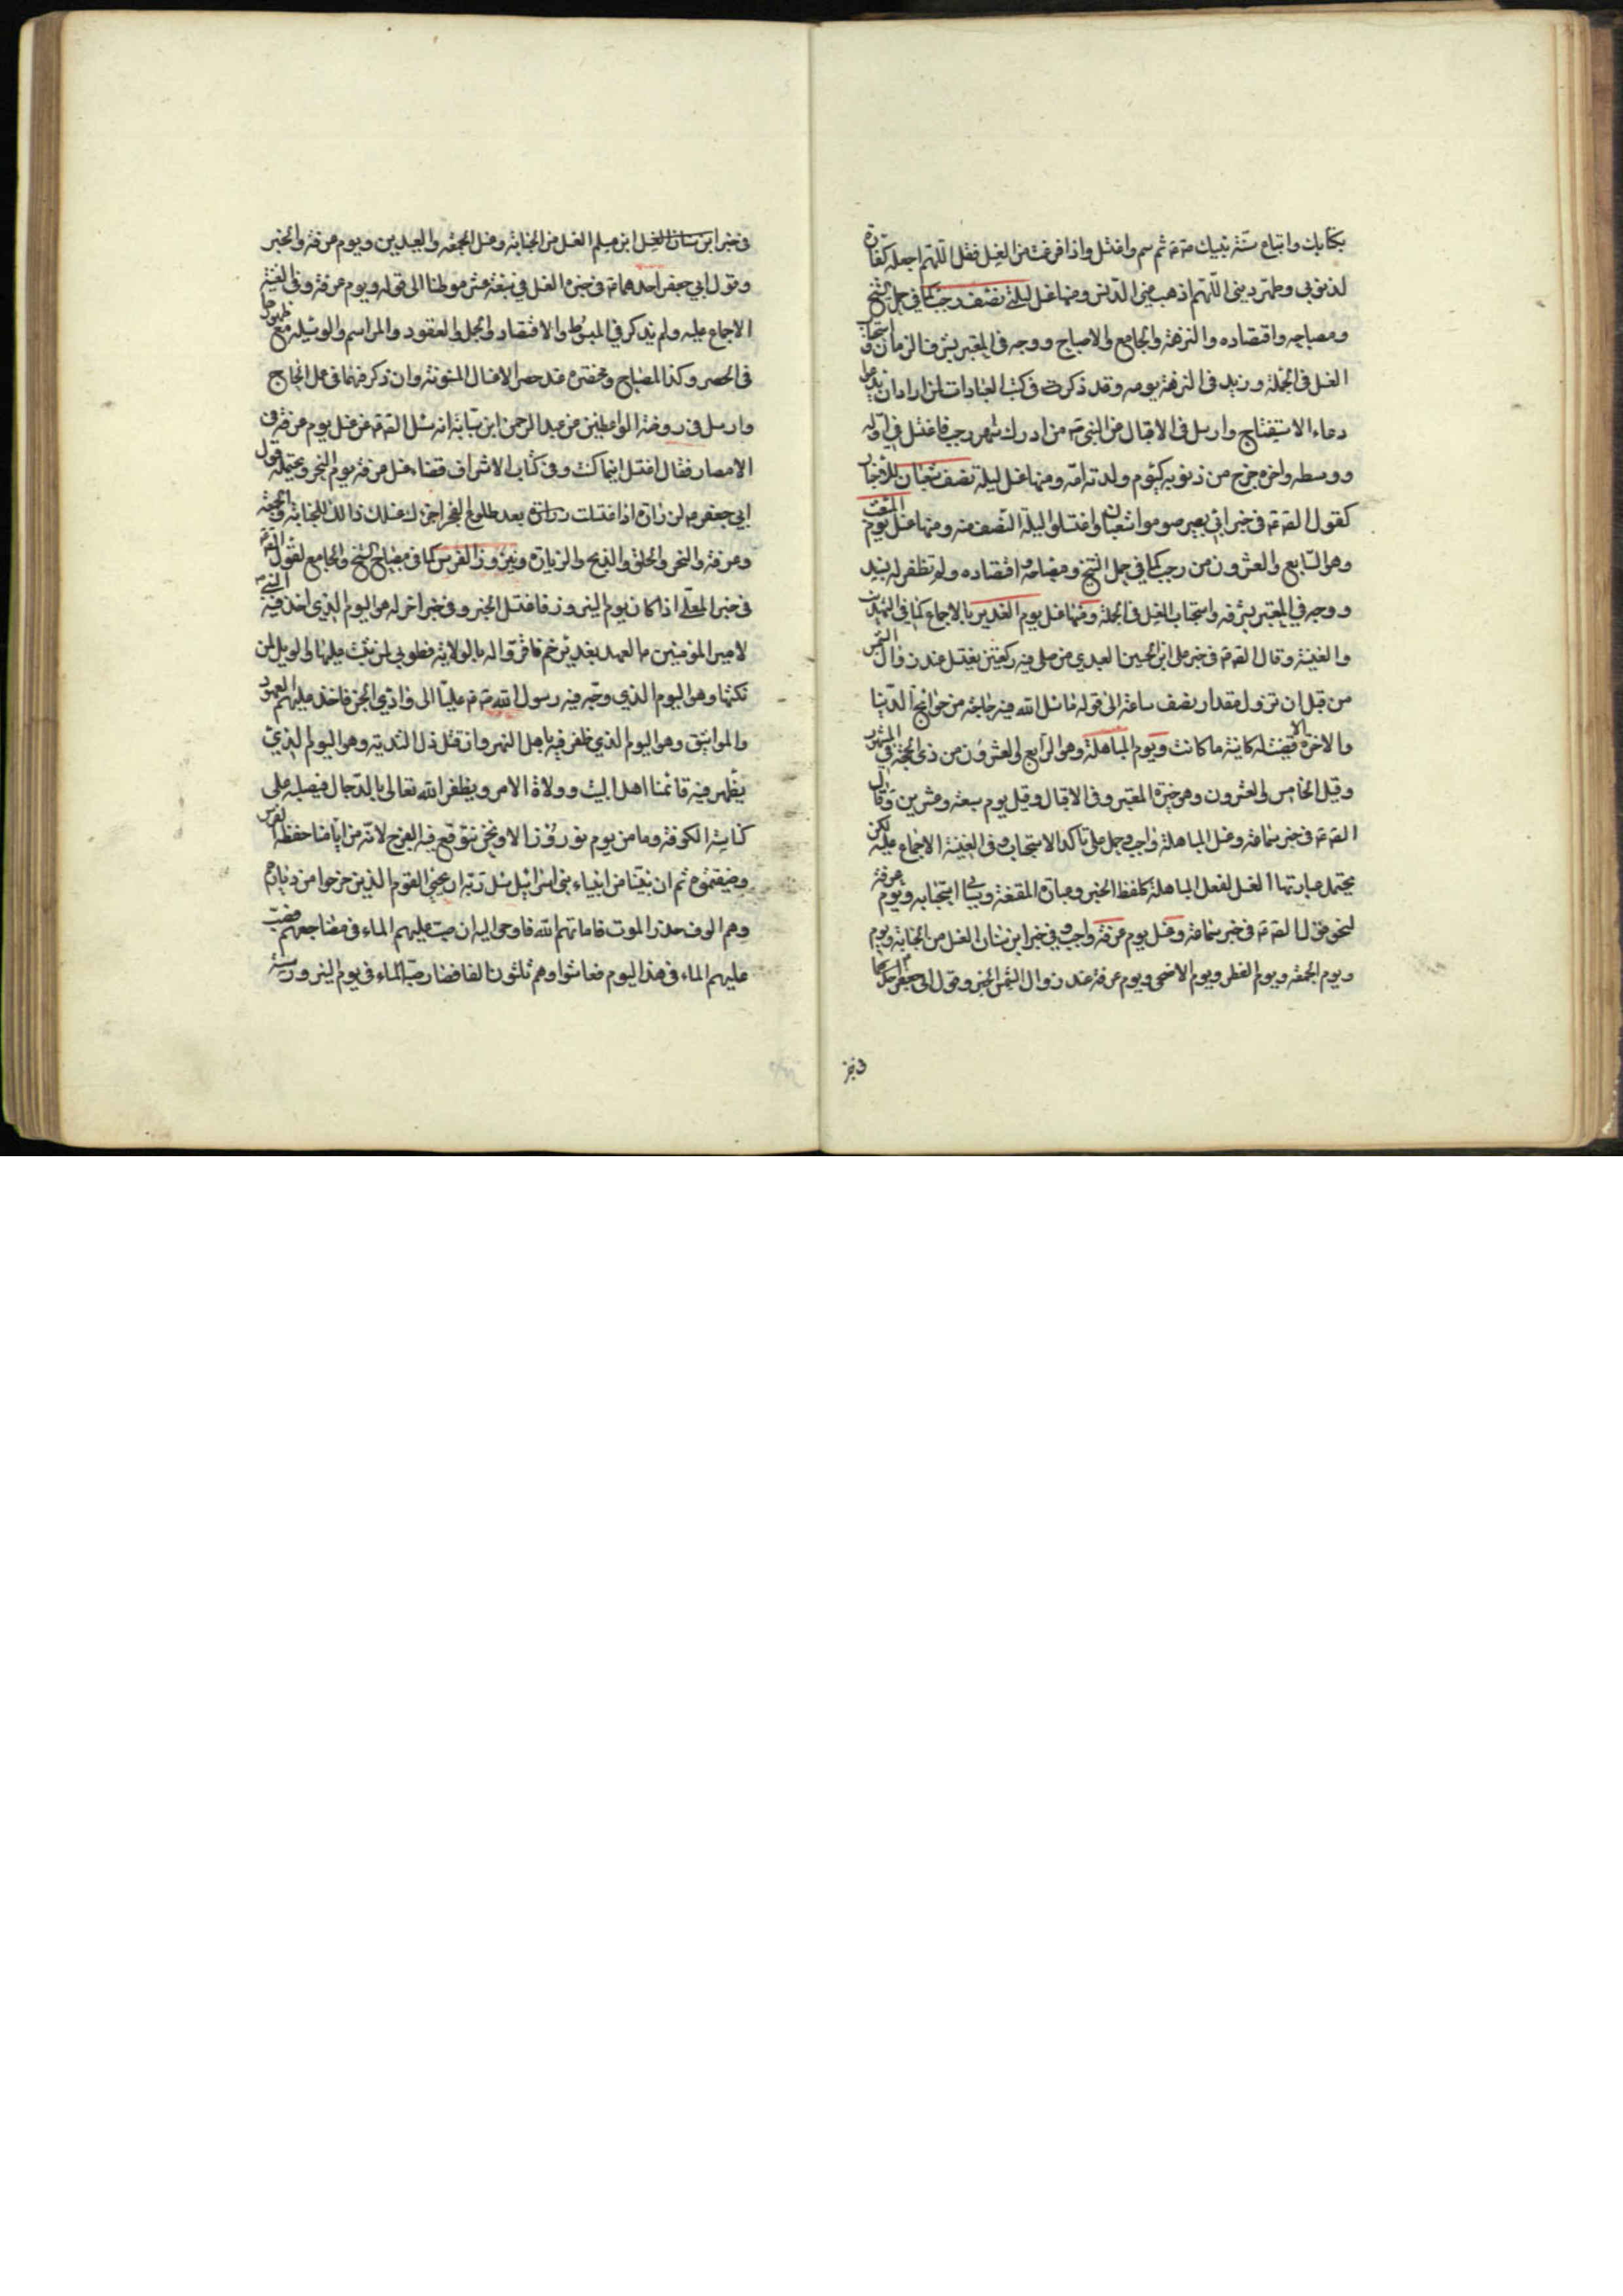 بكتابك واتباع سنة نبيك ص ثم سم واغتسل واذا فرغت من الغسل فقل اللهم اجعله كفارة
لذنوبي وطهر ديني اللهم اذهب عني الدنس ومنها غسل ليلة نصف رجب كما في جمل الشيخ
ومصباحه واقتصاده والنزهة والجامع والاصباح ووجه في المعتبر بشرف الزمان واستحباب
الغسل في الجملة وزيد في النزهة يومه وقد ذكرت في كتب العبادات لمن اراد ان يدعو
دعاء الاستفتاح وارسل في الاقبال عن النبي ص من ادرك شهر رجب فاغتسل في اوله
ووسطه واخره خرج من ذنوبه كيوم ولدته امه ومنها غسل ليلة نصف شعبان للاخبار
كقول الصم في خبر ابي بصير صوموا شعبان واغتسلوا ليلة النصف منه ومنها غسل يوم المبعث
وهو السابع والعشرون من رجب كما في جمل الشيخ ومصباحه واقتصاده ولم نظفر له بسند
ووجه في المعتبر بشرفه واستحباب الغسل في الجملة ومنها غسل يوم الغدير بالاجماع كما في التهذيب
والغنية وقال الصم في خبر علي ابن الحسين العبدي من صلى فيه ركعتين يغتسل عند زوال الشمس
من قبل ان تزول مقدار نصف ساعة الى قوله ما سئل الله فيه حاجة من حوائج الدنيا
والاخرة الا قضيت له كاينة ما كانت ويوم المباهلة وهو الرابع والعشرون من ذي الحجة في المشهور
وقيل الخامس والعشرون وهو خيرة المعتبر وفي الاقبال وقيل يوم سبعة وعشرين وقال
الصم في خبر سماعة وغسل المباهلة واجب وحمل على تاكد الاستحباب وفي الغنية الاجماع عليه لكن
يحتمل عبارتها الغسل لفعل المباهلة كلفظ الخبر وعبارة المقنعة ويأتي استحبابه ويوم عرفة
لنحو قول الصم في خبر سماعة وغسل يوم عرفة واجب وفي خبر ابن سنان الغسل من الجنابة ويوم
ويوم الجمعة ويوم الفطر ويوم الاضحى ويوم عرفة عند زوال الشمس الخبر وقول ابي جعفر احدهما
في خبر
في خبر ابن سنان الغسل ابن مسلم الغسل من الجنابة وغسل الجمعة والعيدين ويوم عرفة والخبر
وقول ابي جعفر احدهما في خبره الغسل في سبعة عشر موطنا الى قوله ويوم عرفة وفي الغنية
الاجماع عليه ولم يذكر في المبسوط والاقتصاد والجمل والعقود والمراسم والوسيلة مع ظهورها
في الحصر وكذا المصباح ومختصره عند حصر الاغسال المسنونة وان ذكر فيهما في عمل الحاج
وارسل في روضة الواعظين عن عبد الرحمن ابن سيابة انه سئل الصم عن غسل يوم عرفة في
الامصار فقال اغتسل اينما كنت وفي كتاب الاشراف قضاء غسل عرفة يوم النحر ويحتمله قول
ابي جعفر لزرارة اذا اغتسلت بعد طلوع الفجر اجزاك غسلك ذلك للجنابة والجمعة
وعرفة والنحر والحلق والذبح والزيارة ونيروز الفرس كما في مصباح الشيخ والجامع لقول الصم
في خبر المعلى اذا كان يوم النيروز فاغتسل الخبر وفي خبر اخر له هو اليوم الذي اخذ فيه النبي
لامير المؤمنين العهد بغدير خم فاقروا له بالولاية فطوبى لمن ثبت عليها والويل لمن
نكثها وهو اليوم الذي وجه فيه رسول الله ص عليا الى وادي الجن فاخذ عليهم العهود
والمواثيق وهو اليوم الذي ظفر فيه باهل النهروان قتل ذا الثدية وهو اليوم الذي
يظهر فيه قائمنا اهل البيت وولاة الامر ويظفر الله تعالى بالدجال فيصلبه على
كناسة الكوفة وما من يوم نوروز الا ونحن نتوقع فيه الفرج لانه من ايامنا حفظه الفرس
وضيعتموه ثم ان نبيا من انبياء بني اسرائيل سئل ربه ان يحيي القوم الذين خرجوا من ديارهم
وهم الوف حذر الموت فاماتهم الله فاوحى اليه ان صب عليهم الماء في مضاجعهم فصب
عليهم الماء في هذا اليوم فعاشوا وهم ثلثون الفا فصار صب الماء في يوم النيروز سنة